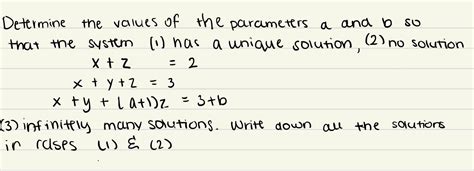 Determine the values of the parameters a and b so
that the system (1) has a unique solution, (2) no solution
x + z = 2
x + y + z = 3
x + y + (a+1)z = 3+b
(3) infinitely many solutions. Write down all the solutions
in cases (1) & (2)